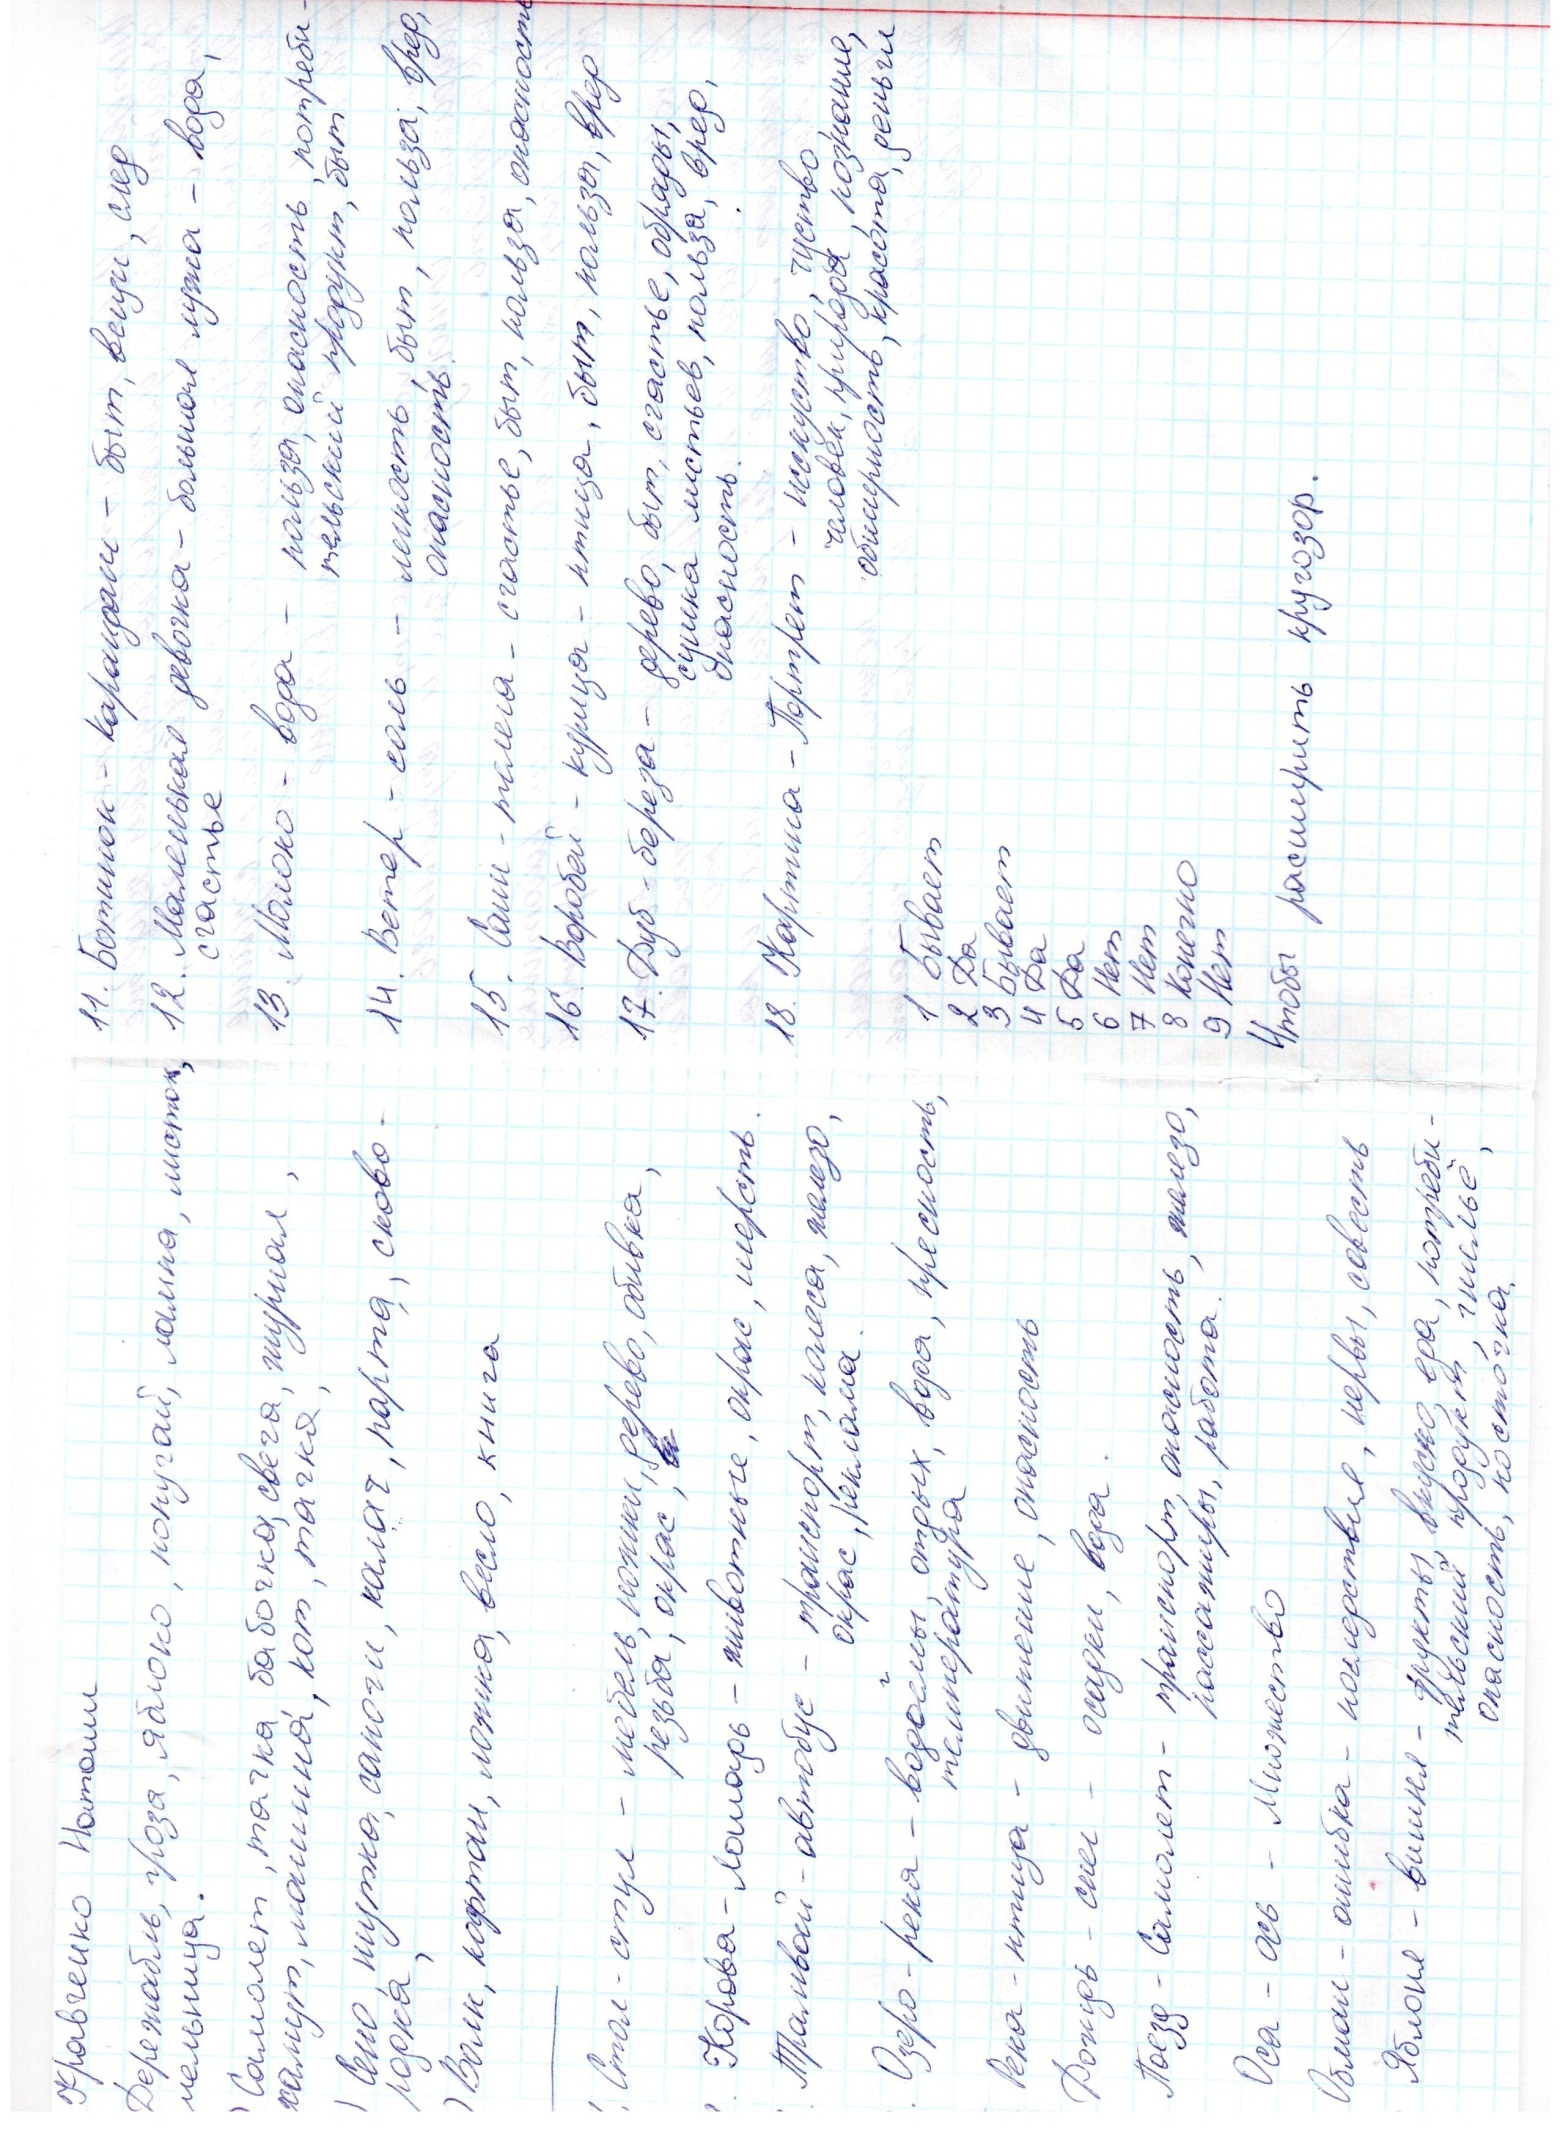 Кравченко Наташи
Дережабль, гроза, яблоко, попугай, лампа, листок,
мельница.
) Самолет, тачка бабочка, свеча, журнал,
хамут, машина, кот, тачка,
) Сено шутка, сапоги, калач, парта, сково-
родка,
) Волк, кафтан, ложка, весло, книга
Стол - стул - мебель, ножки, дерево, обивка,
резьба, окрас,
Корова - Лошадь - животные, окрас, шерсть.
Трамвай - автобус - транспорт, колеса, железо,
окрас, реклама.
Озеро - река - водоёмы, отдых, вода, пресность,
температура
Река - птица - движение, опасность
Дождь - снег - осадки, вода.
Поезд - Самолет - транспорт, опасность, железо,
пассажиры, работа.
Оса - ось - Множество
Обман - ошибка - последствия, нервы, совесть
Яблоня - вишня - фрукты, вкусно, еда, потреби-
тельский продукт, гнильё,
опасность, косточка.
11. Ботинок - карандаш - быт, вещи, след
12. Маленькая девочка - большая лужа - вода,
счастье
13. Молоко - вода - польза, опасность, потреби-
тельский продукт, быт
14. Ветер - соль - легкость, быт, польза, вред,
опасность.
15. Сани - телега - счастье, быт, польза, опасность
16. Воробей - курица - птица, быт, польза, вред
17. Дуб - береза - дерево, быт, счастье, обряды,
сушка листьев, польза, вред,
опасность.
18. Картина - Портрет - искуство, чуство
человек, природа, познание,
обширность, красота, деньги
1 Бывает
2 Да
3 Бывает
4 Да
5 Да
6 Нет
7 Нет
8 Конечно
9 Нет
Чтобы расширить кругозор.